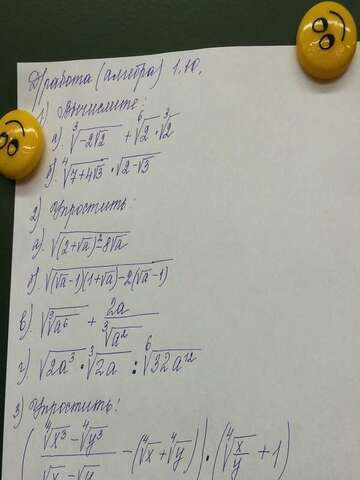 Д/работа (алгебра) 1.10.
1) Вычислите:
а). ∛(-2√2) + ⁶√2 · ∛2
б). ⁴√(7+4√3) · √(2-√3)
2) Упростить:
а). √((2+√a)²-8√a)
б). √((√a-1)(1+√a)-2(√a-1))
в). √(∛(a⁶)) + 2a/∛(a²)
г). √(2a³) · ∛(2a) : ⁶√(32a¹²)
3) Упростить:
((⁴√(x³)-⁴√(y³))/(√x-√y) - (⁴√x+⁴√y)) · (⁴√(x/y) + 1)